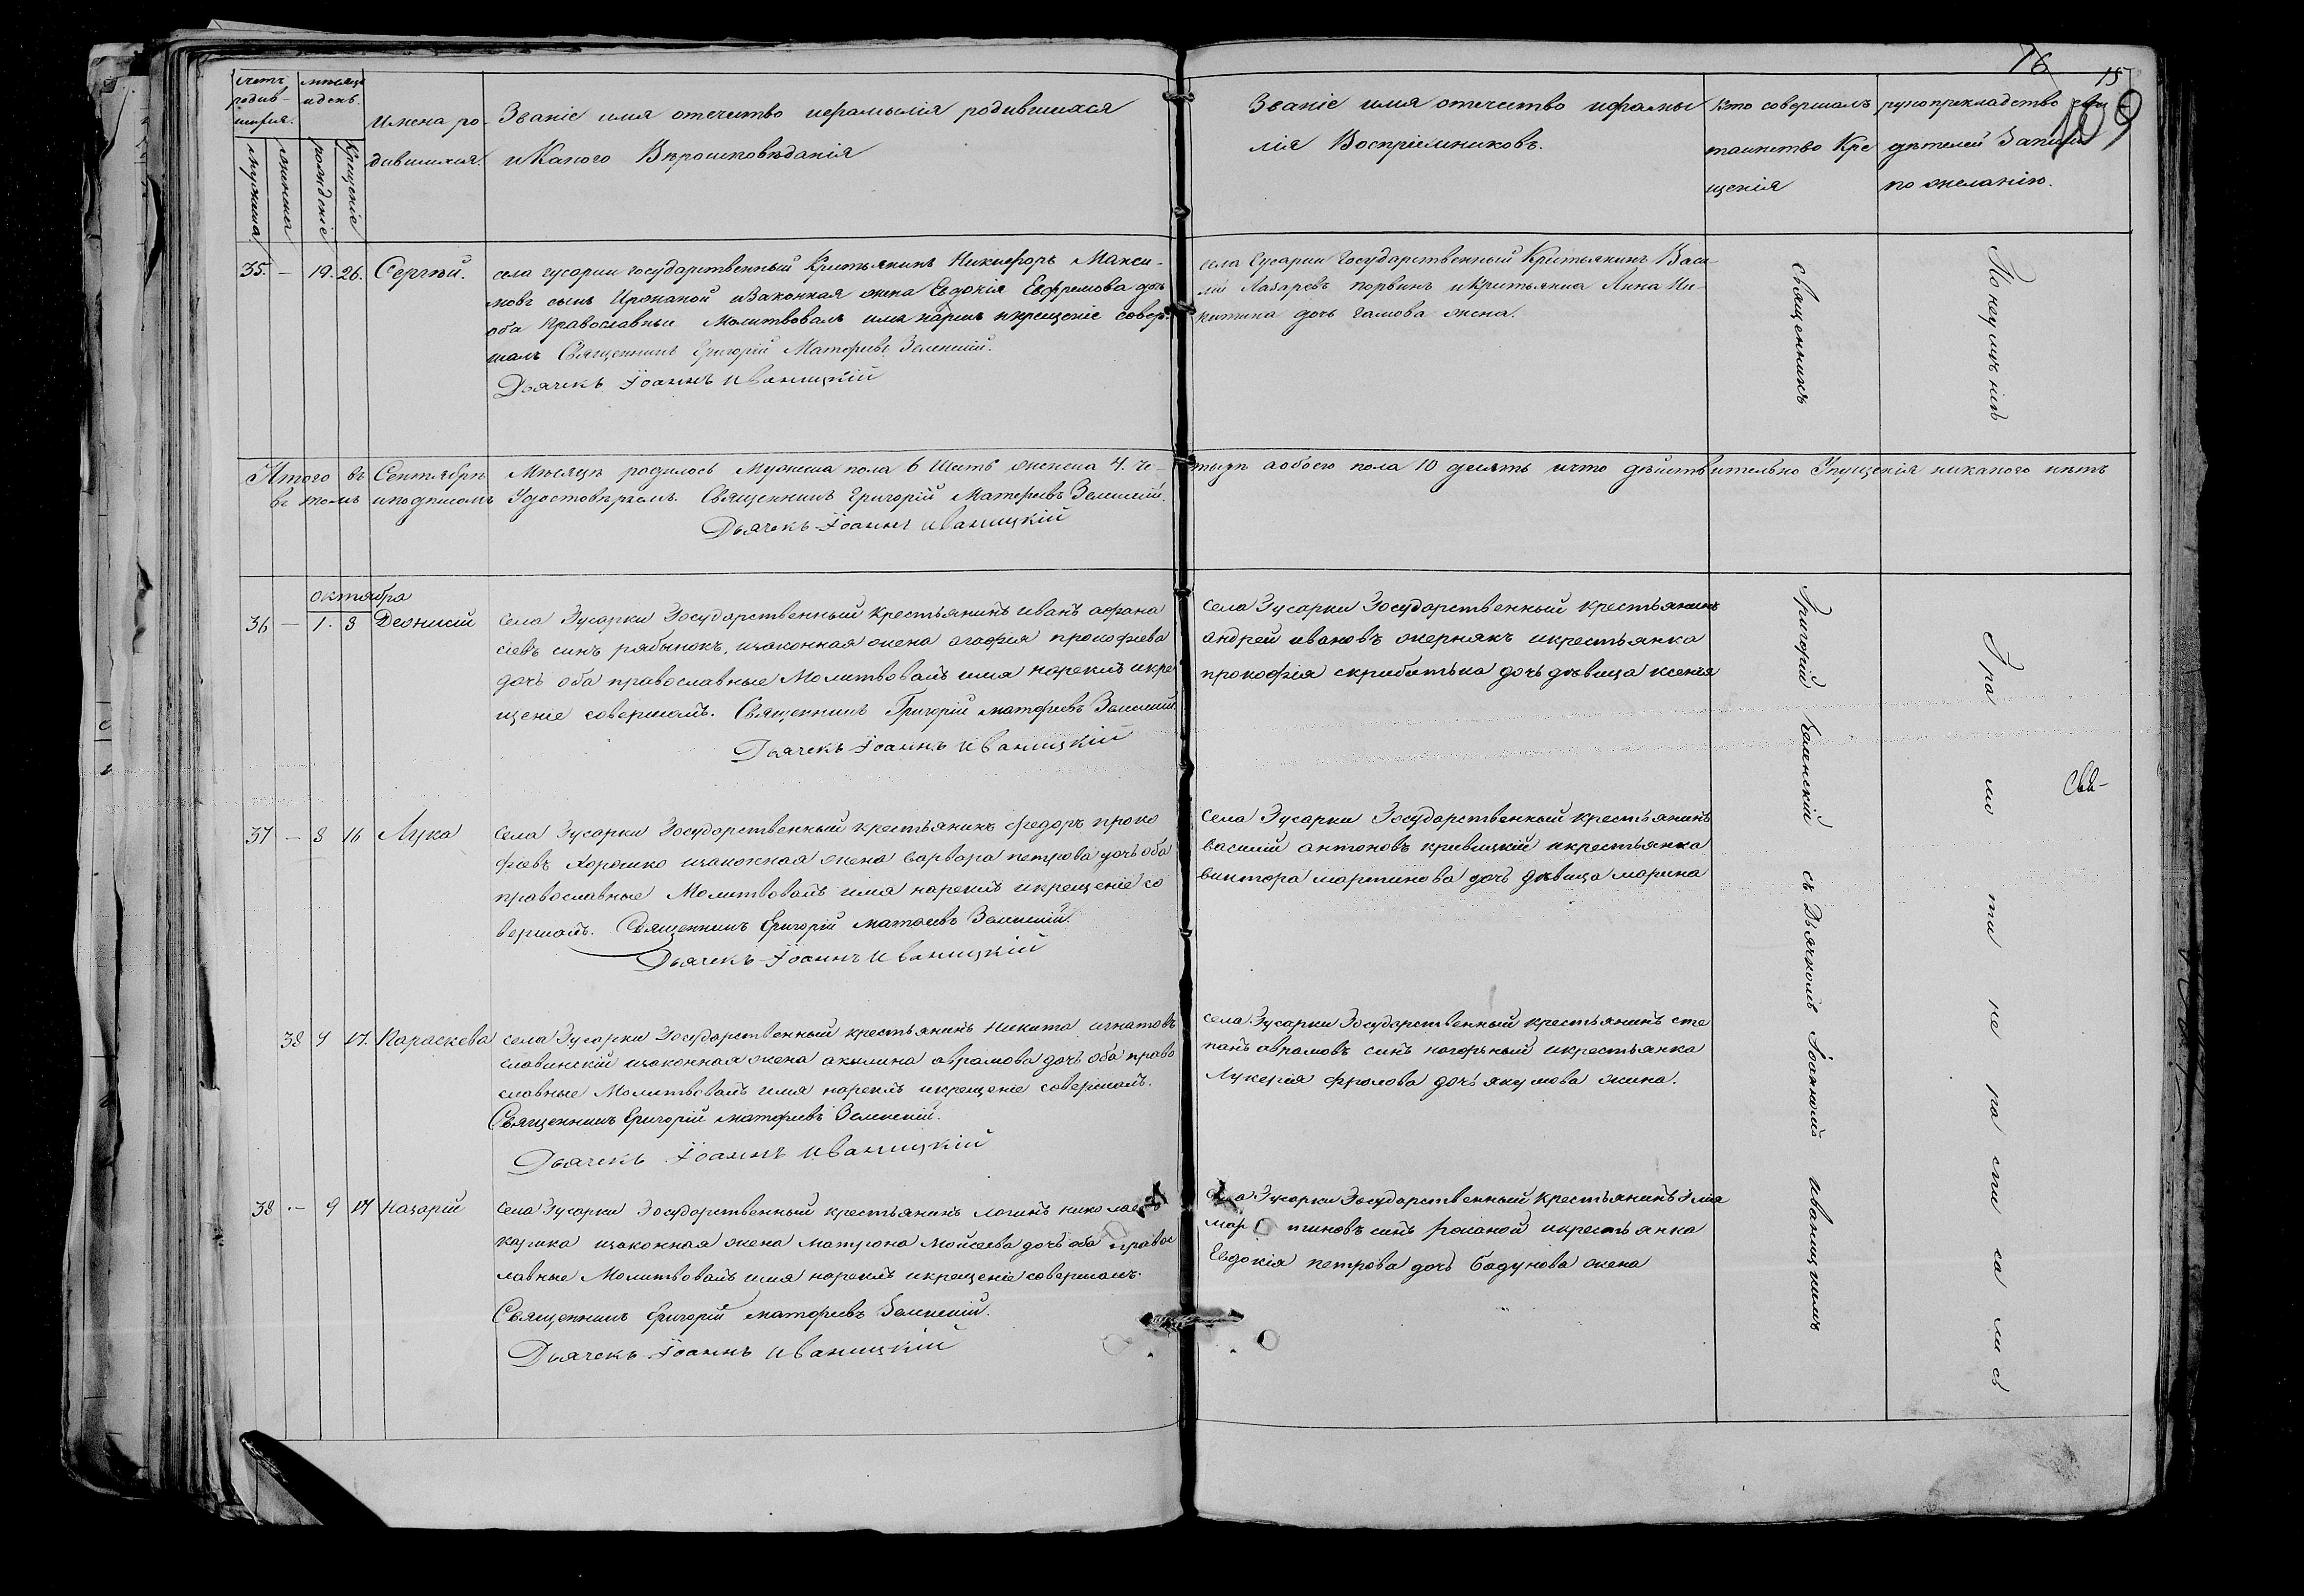 76
15
109
счетъ родив-шихся.
мѣсяцъ и день.
Имена ро-
дившихся.
мужеска
женска
рожденіе
крещеніе
Званіе имя отечество ифамылія родившихся
икакого Вѣроисповѣданія
Званіе имя отечество ифамы
лія Воспріемниковъ.
кто совершалъ
таинство Кре
щенія
рукоприкладство сви
дѣтелей Записи
по желанію.
35. — 19. 26. Сергѣй.
села гусарки государственный Крестьянинъ Никифоръ Макси-
мовъ сынъ изаконная жена Евдокія Евфремова дочь
оба Православные Молитвовалъ имя нарекъ икрещеніе совер-
шалъ Священникъ Григорій Матфеевъ Зеленскій.
Дьячекъ Іоаннъ Иваницкій
села Гусарки Государственный Крестьянинъ Васи-
лій Лазаревъ икрестьянка Анна Ни-
китина дочь Гамова жена.
Итого въ Сентябрѣ Мѣсяцѣ родилось Мужеска пола 6 Шесть женска 4. че-
тыре аобоего пола 10 десять ичто дѣйствительно Упущенія никакого нѣтъ
въ томъ иподписомъ Удостовѣряемъ. Священникъ Григорій Матфеевъ Зеленскій.
Дьячекъ Іоаннъ Иваницкій
октября
36 — 1. 3 Деонисій
села Гусарки Государственный крестьянинъ иванъ афана
сіевъ синъ рябынокъ, изаконная жена агафия прокофиева
дочъ оба православные Молитвовалъ имя нарекъ икре
щеніе совершалъ. Священникъ Григорій матфеевъ Зеленскій.
Дьячекъ Іоаннъ Иваницкій
Села Гусарки Государственный крестьянинъ
андрей ивановъ жернякъ икрестьянка
прокофія скрибитька дочъ дѣвица ксенія
37 — 8 16 Лука
Села Гусарки Государственный крестьянинъ Федоръ проко
фіевъ Хорошко изаконная жена варвара петрова дочъ оба
православные Молитвовалъ имя нарекъ икрещеніе со
вершалъ. Священникъ Григорій матфеевъ Зеленскій.
Дьячекъ Іоаннъ Иваницкій
Села Гусарки Государственный крестьянинъ
василій антоновъ кривицкій икрестьянка
виктора мартинова дочъ дѣвица марина
38 9 17. Параскева
села Гусарки Государственный крестьянинъ Никита игнатовъ
славинскій изаконная жена акилина аврамова дочъ оба право
славные Молитвовалъ имя нарекъ икрещеніе совершалъ.
Священникъ Григорій матфеевъ Зеленскій.
Дьячекъ Іоаннъ Иваницкій
села Гусарки Государственный крестьянинъ сте
панъ аврамовъ синъ нагорный икрестьянка
Лукерія фролова дочъ якумова жина.
38 — 9 17 Назарій
Села Гусарки Государственный крестьянинъ логинъ николаевъ
казика изаконная жена матрона Мойсеева дочъ оба правос
лавные Молитвовалъ имя нарекъ икрещеніе совершалъ.
Священникъ Григорій матфеевъ Зеленскій.
Дьячекъ Іоаннъ Иваницкій
села Гусарки Государственный крестьянинъ илія
мартиновъ синъ икрестьянка
Евдокія петрова дочъ бадунова жена
священникъ Григорій Зеленскій съ Дьячкомъ Іоанномъ Иваницкимъ
По неумѣнію Грамоти не расписались
Свя-